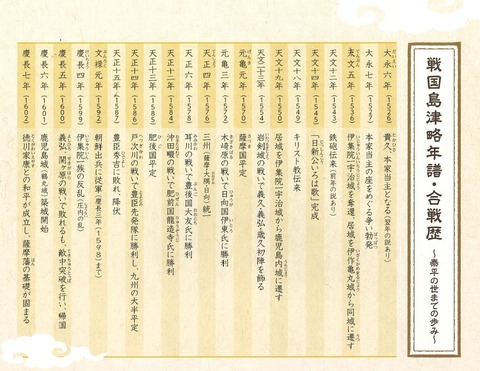 戦国島津略年譜・合戦歴
〜泰平の世までの歩み〜
大永六年（1526） 貴久、本家当主となる（翌年の説あり）
大永七年（1527） 本家当主の座をめぐる争い勃発
天文五年（1536） 伊集院一宇治城を奪還、居城を伊作亀丸城から同城に遷す
天文十二年（1543） 鉄砲伝来（前年の説あり）
天文十四年（1545） 「日新公いろは歌」完成
天文十八年（1549） キリスト教伝来
天文十九年（1550） 居城を伊集院一宇治城から鹿児島内城に遷す
天文二十三年（1554） 岩剣城の戦いで義久・義弘・歳久初陣を飾る
元亀元年（1570） 薩摩国平定
元亀三年（1572） 木崎原の戦いで日向国伊東氏に勝利
天正四年（1576） 三州（薩摩・大隅・日向）統一
天正六年（1578） 耳川の戦いで豊後国大友氏に勝利
天正十二年（1584） 沖田畷の戦いで肥前国龍造寺氏に勝利
天正十三年（1585） 肥後国平定
天正十四年（1586） 戸次川の戦いで豊臣先発隊に勝利し、九州の大半平定
天正十五年（1587） 豊臣秀吉に敗れ、降伏
文禄元年（1592） 朝鮮出兵に従軍（慶長三年（1598）まで）
慶長四年（1599） 伊集院一族の反乱（庄内の乱）
慶長五年（1600） 義弘、関ヶ原の戦いで敗れるも、敵中突破を行い、帰国
慶長六年（1601） 鹿児島城（鶴丸城）築城開始
慶長七年（1602） 徳川家康との和平が成立し、薩摩藩の基礎が固まる